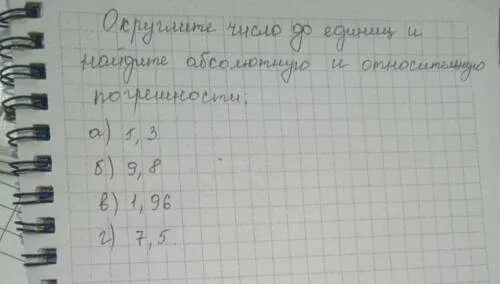 Округлите число до единиц и
найдите абсолютную и относительную
погрешности:
а) 5,3
б) 9,8
в) 1,96
г) 7,5